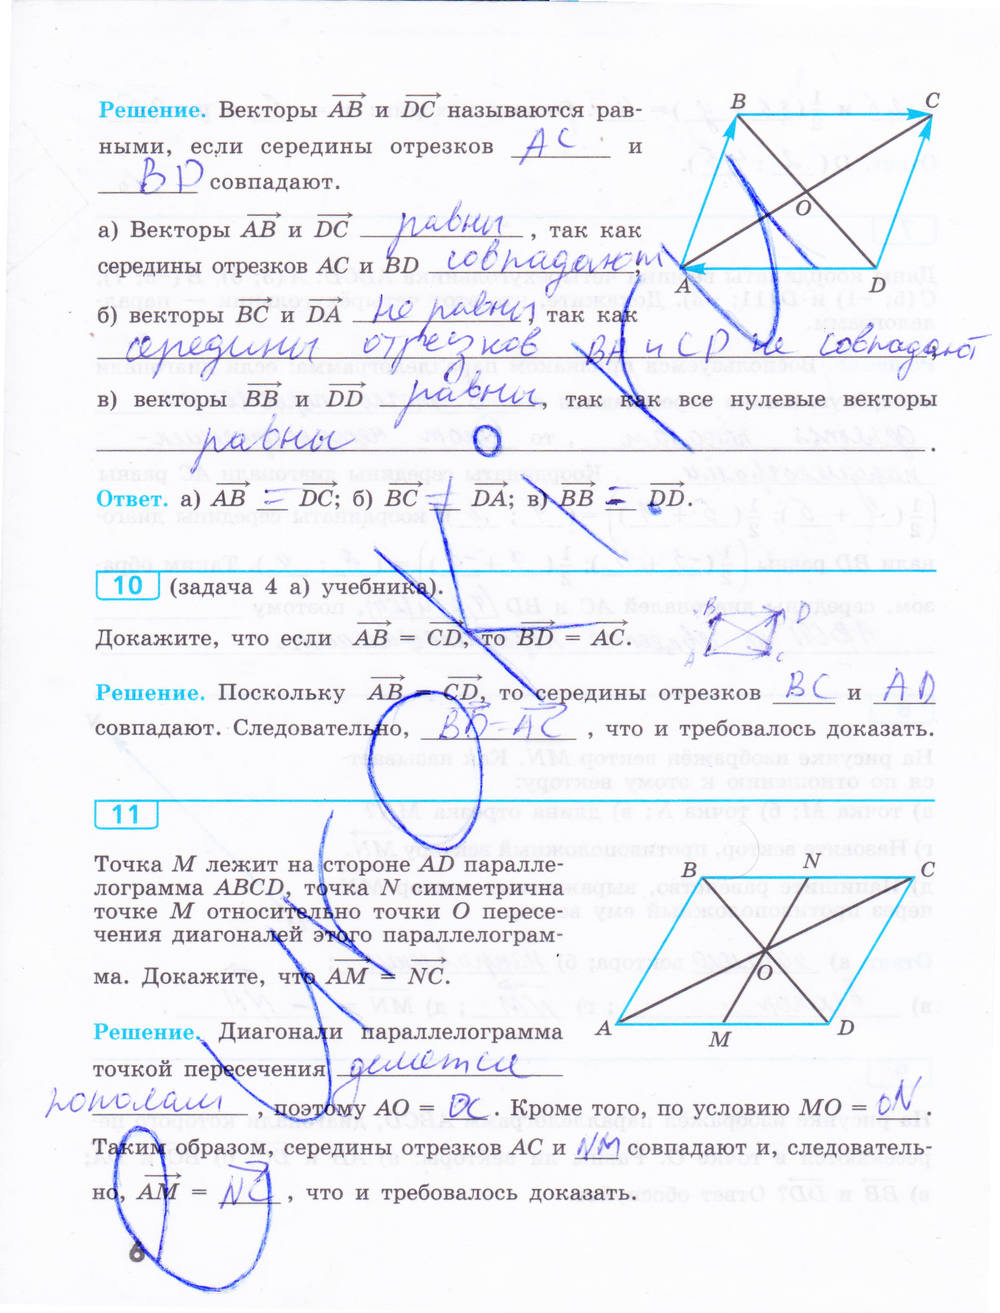 Решение. Векторы AB и DC называются рав-
ными, если середины отрезков AC и
BD совпадают.
B
C
O
A
D
а) Векторы AB и DC равны, так как
середины отрезков AC и BD совпадают;
б) векторы BC и DA не равны, так как
середины отрезков BA и CD не совпадают;
в) векторы BB и DD равны, так как все нулевые векторы
равны.
Ответ. а) AB = DC; б) BC ≠ DA; в) BB = DD.
10 (задача 4 а) учебника).
Докажите, что если AB = CD, то BD = AC.
B
D
A
C
Решение. Поскольку AB = CD, то середины отрезков BC и AD
совпадают. Следовательно, BD = AC, что и требовалось доказать.
11
Точка M лежит на стороне AD паралле-
лограмма ABCD, точка N симметрична
точке M относительно точки O пересе-
чения диагоналей этого параллелограм-
ма. Докажите, что AM = NC.
B
N
C
O
A
M
D
Решение. Диагонали параллелограмма
точкой пересечения делятся
пополам, поэтому AO = OC. Кроме того, по условию MO = ON.
Таким образом, середины отрезков AC и NM совпадают и, следователь-
но, AM = NC, что и требовалось доказать.
6